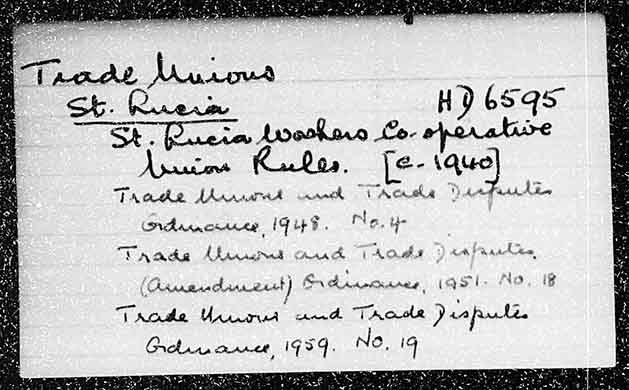 Trade Unions
St. Lucia HD 6595
St. Lucia Workers Co-operative
Union Rules. [c. 1940]
Trade Unions and Trade Disputes
Ordinance, 1948. No. 4
Trade Unions and Trade Disputes
(Amendment) Ordinance, 1951. No. 18
Trade Unions and Trade Disputes
Ordinance, 1959. No. 19